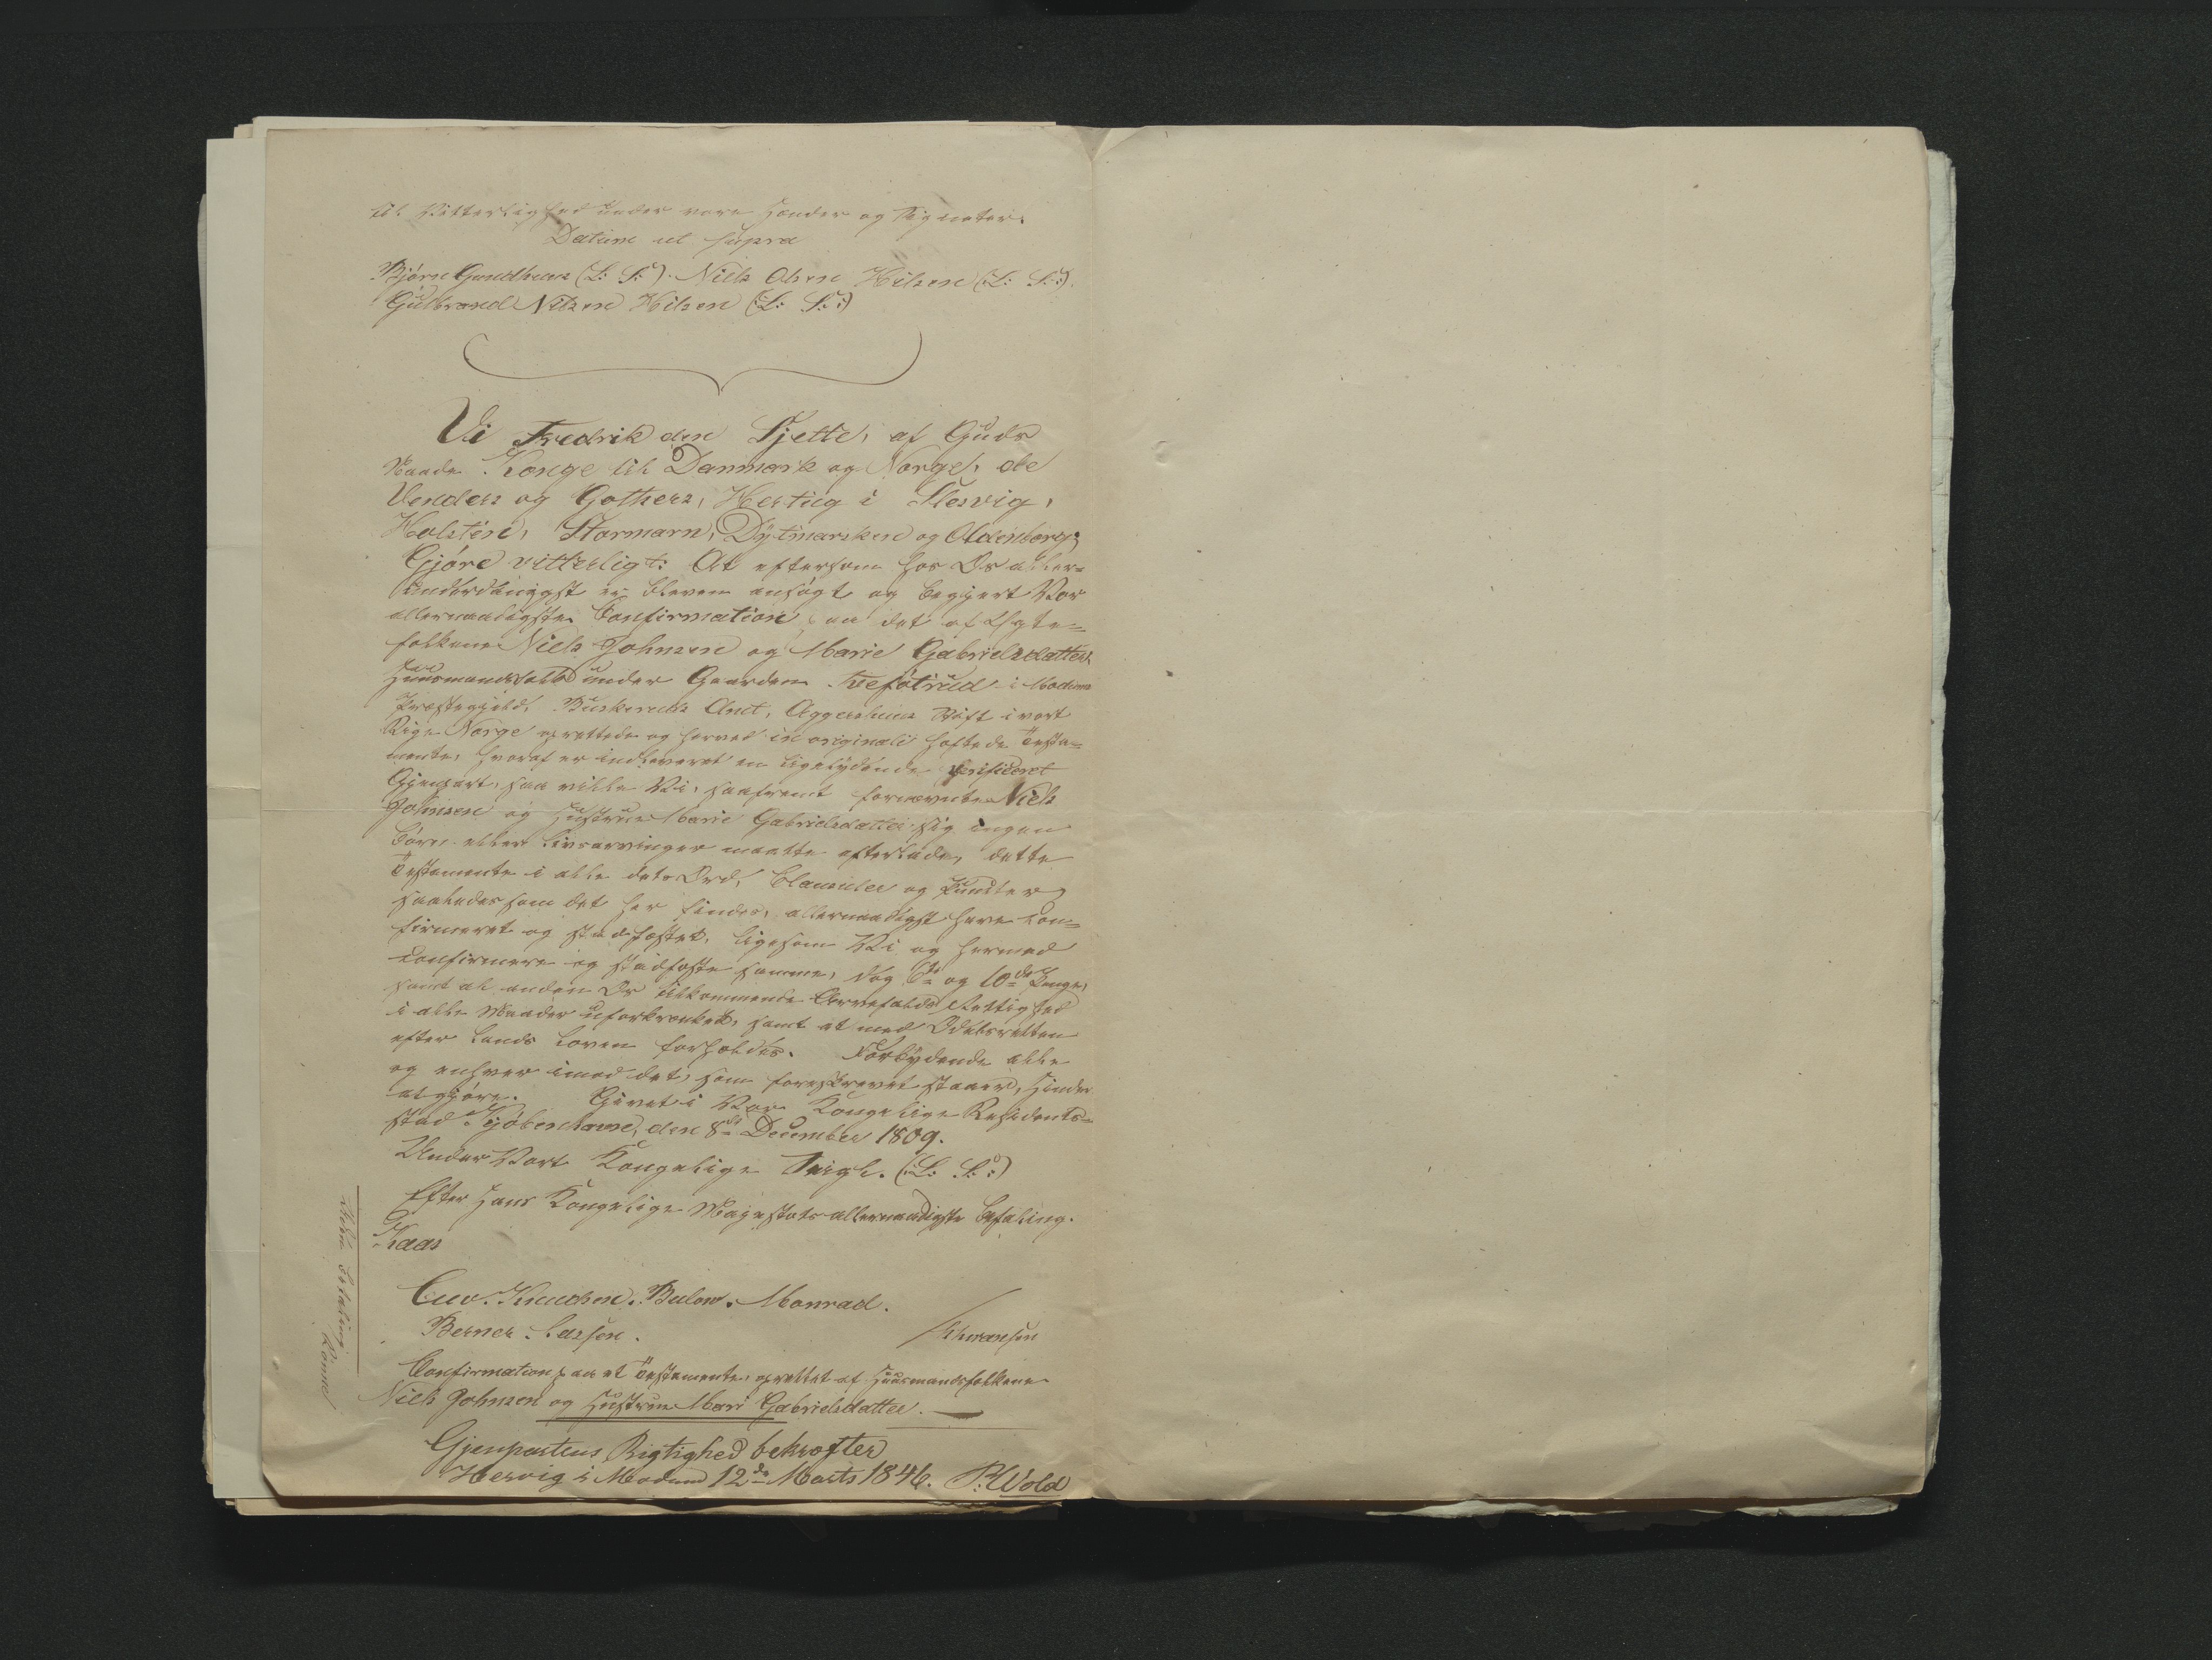 til Vitterlighed under vore Hænder og Signeter.
Datum ut supra
Bjørn Gundhuus (L: S:). Niels Olsen Hilsen (L: S:).
Gulbrand Nilsen Hilsen (L: S:)
Vi Fredrik den Sjette, af Guds
Naade Konge til Danmark og Norge, de
Venders og Gothers, Hertug i Slesvig,
Holsten, Stormarn, Dytmarsken og Oldenborg;
Gjøre vitterligt: At eftersom hos Os aller=
underdanigst er bleven ansøgt og begjert Vor
allernaadigste Confirmation paa det af Ægte=
folkene Niels Johnsen og Marie Gabrielsdatter,
Huusmandsfolk under Gaarden i Modums
Præstegjeld, Buskeruds Amt, Aggershuus Stift i vort
Rige Norge oprettede og herved in originali heftede Testa=
mente, hvoraf er indleveret en ligelydende verificeret
Gjenpart, saa ville Vi, saafremt fornævnte Niels
Johnsen og Hustrue Marie Gabrielsdatter sig ingen
Børn eller Livsarvinger maatte efterlade, dette
Testamente i alle dets Ord, Clausuler og Puncter,
saaledes som det her findes, allernaadigst have con=
firmeret og stadfæstet, ligesom Vi og hermed
confirmere og stadfæste samme, dog 6te og 10de Penge,
samt al anden Os tilkommende Arvefalds Rettighed
i alle Maader uforkrænket, samt at med Odelsretten
efter Lands Loven forholdes. Forbydende alle
og enhver imod det, som foreskrevet staaer, Hinder
at gjøre. Givet i Vor Kongelige Residents=
stad Kjøbenhavn, den 8de December 1809.
Under Vort Kongelige Seigl. (L: S:)
Efter Hans Kongelige Majestæts allernaadigste Befaling.
Kaas
Cuv. Knudsen. Bulow. Monrad.
Berner. Lassen.
Confirmation paa et Testamente, oprettet af Huusmandsfolkene
Niels Johnsen og Hustrue Mari Gabrielsdatter.
Gjenpartens Rigtighed bekræfter
Hervig i Modum 12te Marts 1846. P. Wold
Betaling